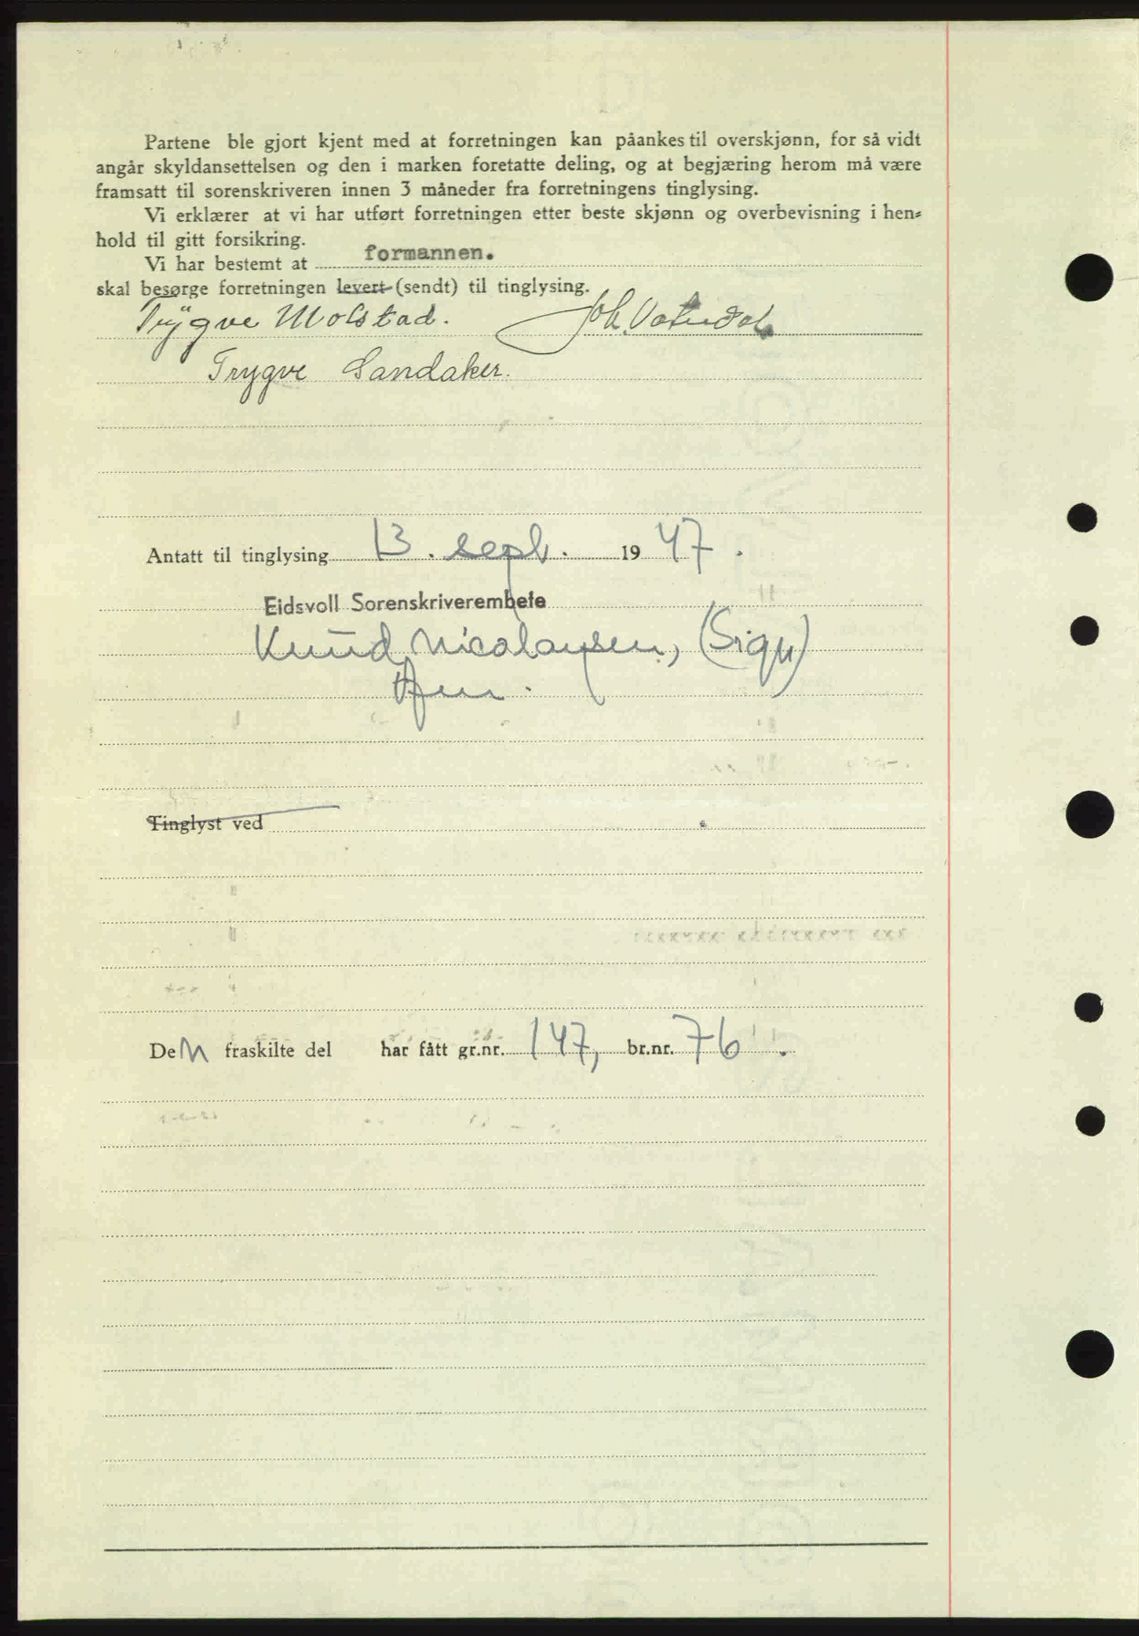 Partene ble gjort kjent med at forretningen kan påankes til overskjønn, for så vidt
angår skyldansettelsen og den i marken foretatte deling, og at begjæring herom må være
framsatt til sorenskriveren innen 3 måneder fra forretningens tinglysing.
Vi erklærer at vi har utført forretningen etter beste skjønn og overbevisning i hen=
hold til gitt forsikring.
Vi har bestemt at formannen.
skal besørge forretningen levert (sendt) til tinglysing.
Trygve Molstad. Joh.
Trygve Sandaker.
Antatt til tinglysing 13. sept. 1947.
Eidsvoll Sorenskriverembete
Knud Nicolaysen, (Sign)
Tinglyst ved
Den fraskilte del har fått gr.nr. 147, br.nr. 76.